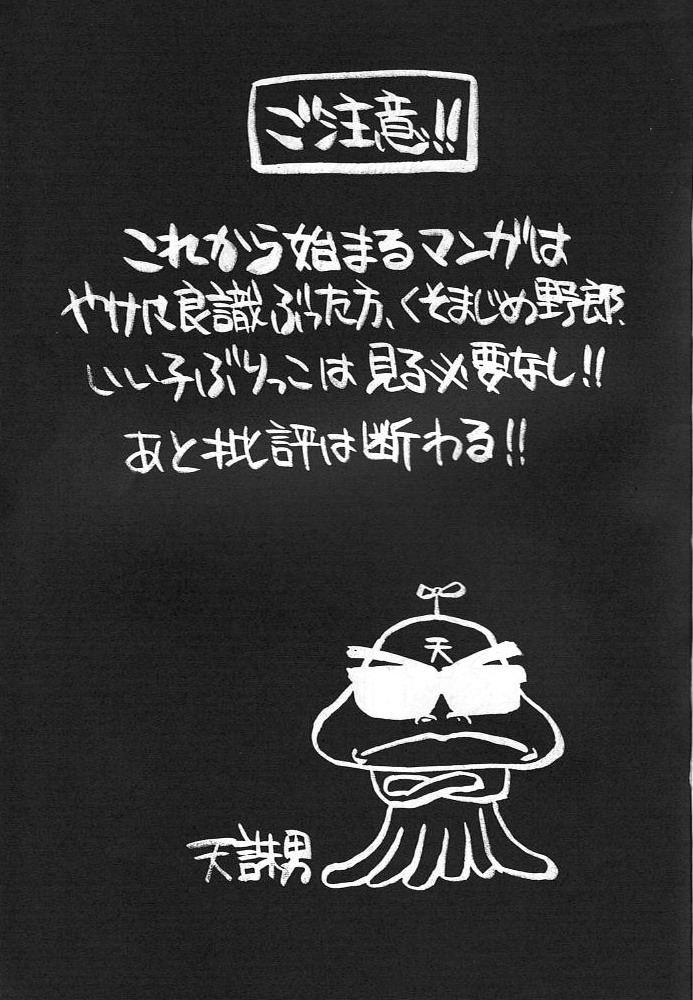 ご注意!!
これから始まるマンガは
やけに良識ぶった方、くそまじめ野郎、
いい子ぶりっこは見る必要なし!!
あと批評は断わる!!
天
天誅男